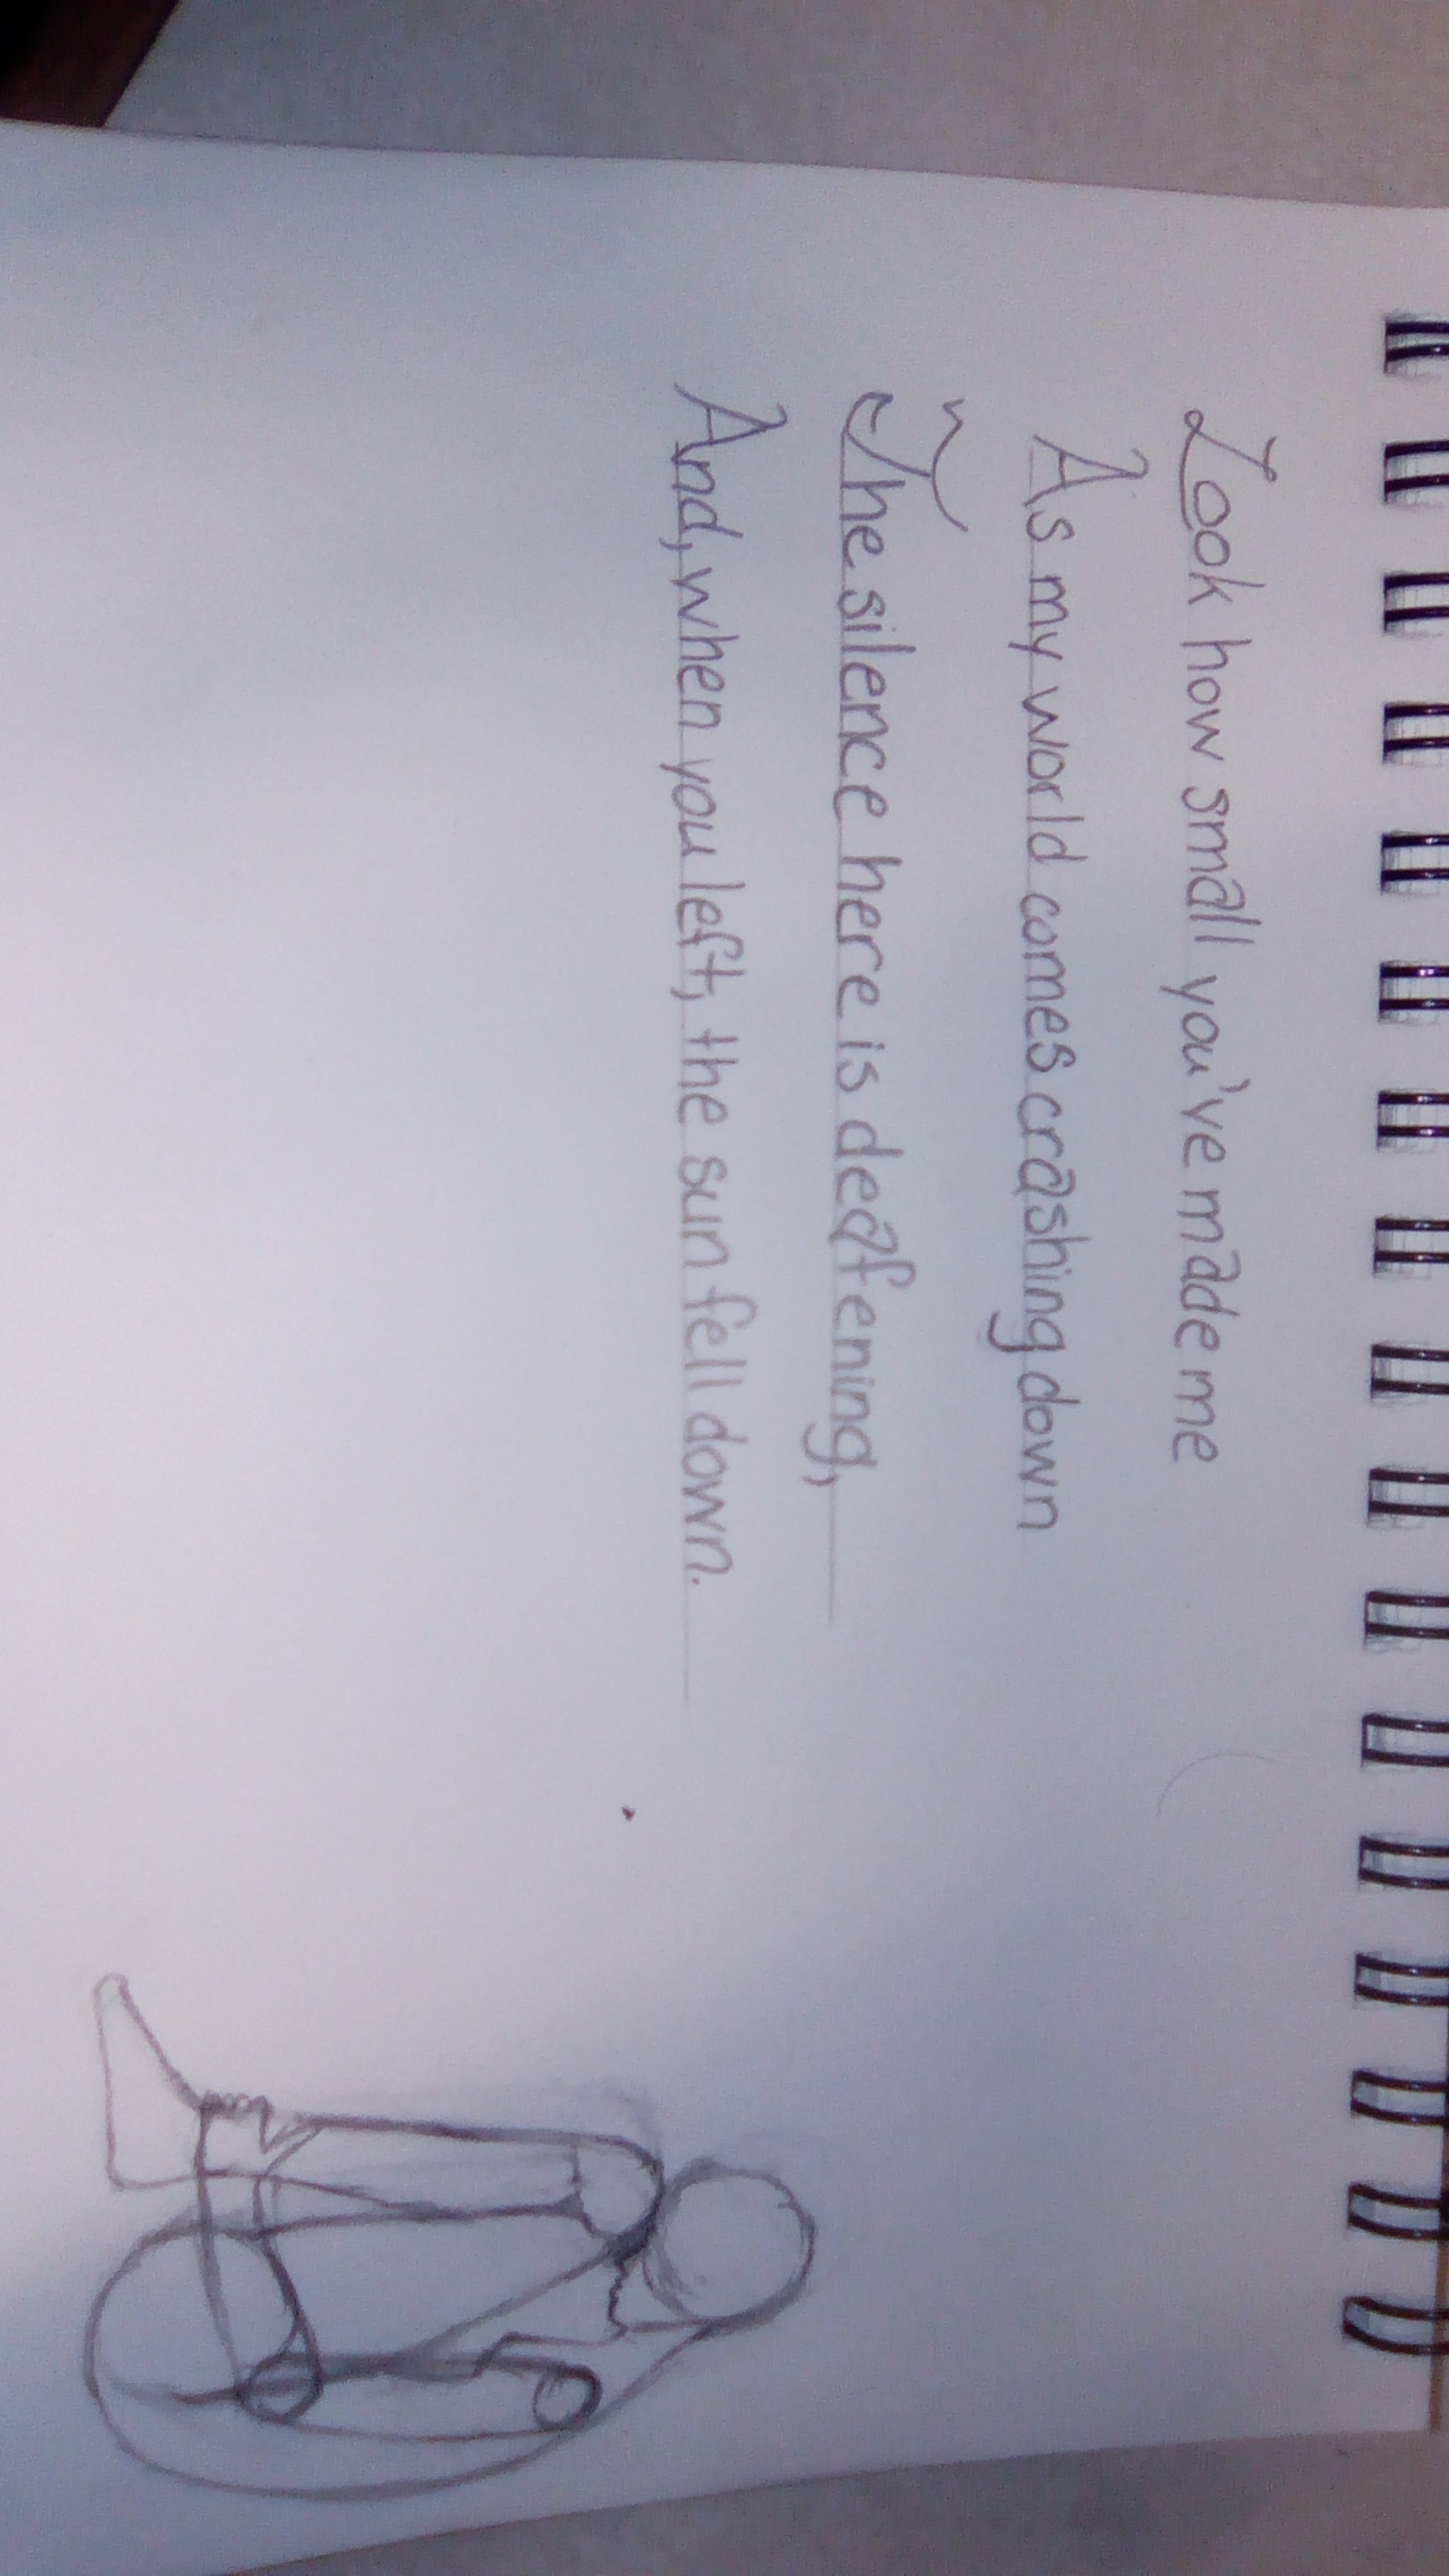 Look how small you've made me
As my world comes crashing down
The silence here is deafening,
And, when you left, the sun fell down.